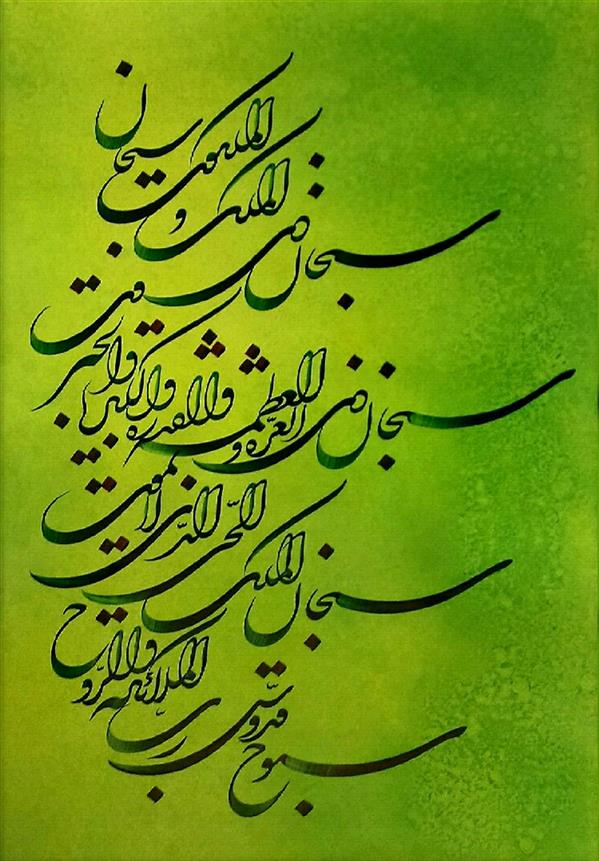 سبحان ذي الملك و الملكوت سبحان
سبحان ذي العزة و العظمة والقدرة والكبرياء والجبروت
سبحان الملك الحي الذي لا يموت
سبوح قدوس رب الملائكة والروح